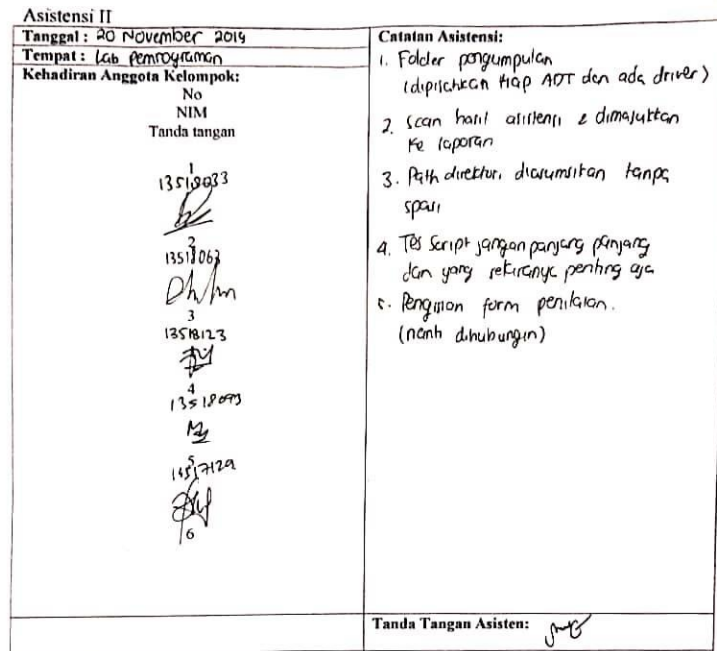 Asistensi II
Tanggal : 20 November 2019
Tempat : Lab Pemrograman
Kehadiran Anggota Kelompok:
No
NIM
Tanda tangan
1
13518033
2
13518063
3
13518123
4
13518093
5
13517129
6
Catatan Asistensi:
1. Folder pengumpulan
(dipisahkan tiap ADT dan ada driver)
2. Scan hasil asistensi & dimasukkan
ke laporan
3. Path direktori diasumsikan tanpa
spasi
4. Tes Script jangan panjang panjang
dan yang sekiranya penting aja
5. Pengisian form penilaian.
(nanti dihubungin)
Tanda Tangan Asisten: